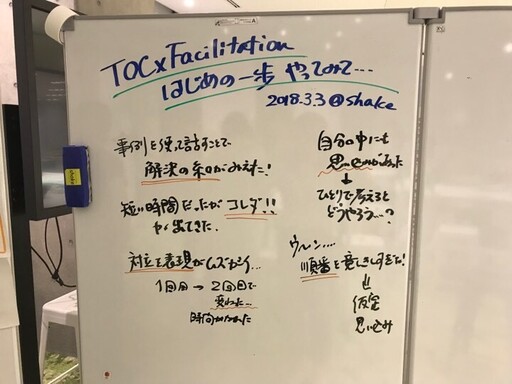 TOCxFacilitation
はじめの一歩 やってみて…
2018.3.3@shake
事例を使って話すことで
解決の糸口がみえた!
短い時間だったが コレダ!!
が出てきた.
対立を表現がムズカシイ…
1回目→2回目で
変わった…
時間がかかった
自分の中にも
思い込みがあった
↓
ひとりで考えると
どうやろう…?
ウーン…
順番を意識しすぎた!
↓
仮定
思い込み